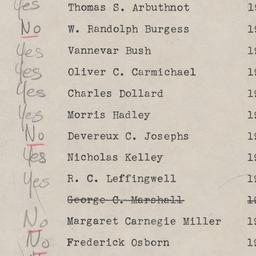 Yes Thomas S. Arbuthnot 19
No W. Randolph Burgess 19
Yes Vannevar Bush 19
Yes Oliver C. Carmichael 19
Yes Charles Dollard 19
Yes Morris Hadley 19
No Devereux C. Josephs 19
Yes Nicholas Kelley 19
Yes R. C. Leffingwell 19
George C. Marshall 19
No Margaret Carnegie Miller 19
No Frederick Osborn 19